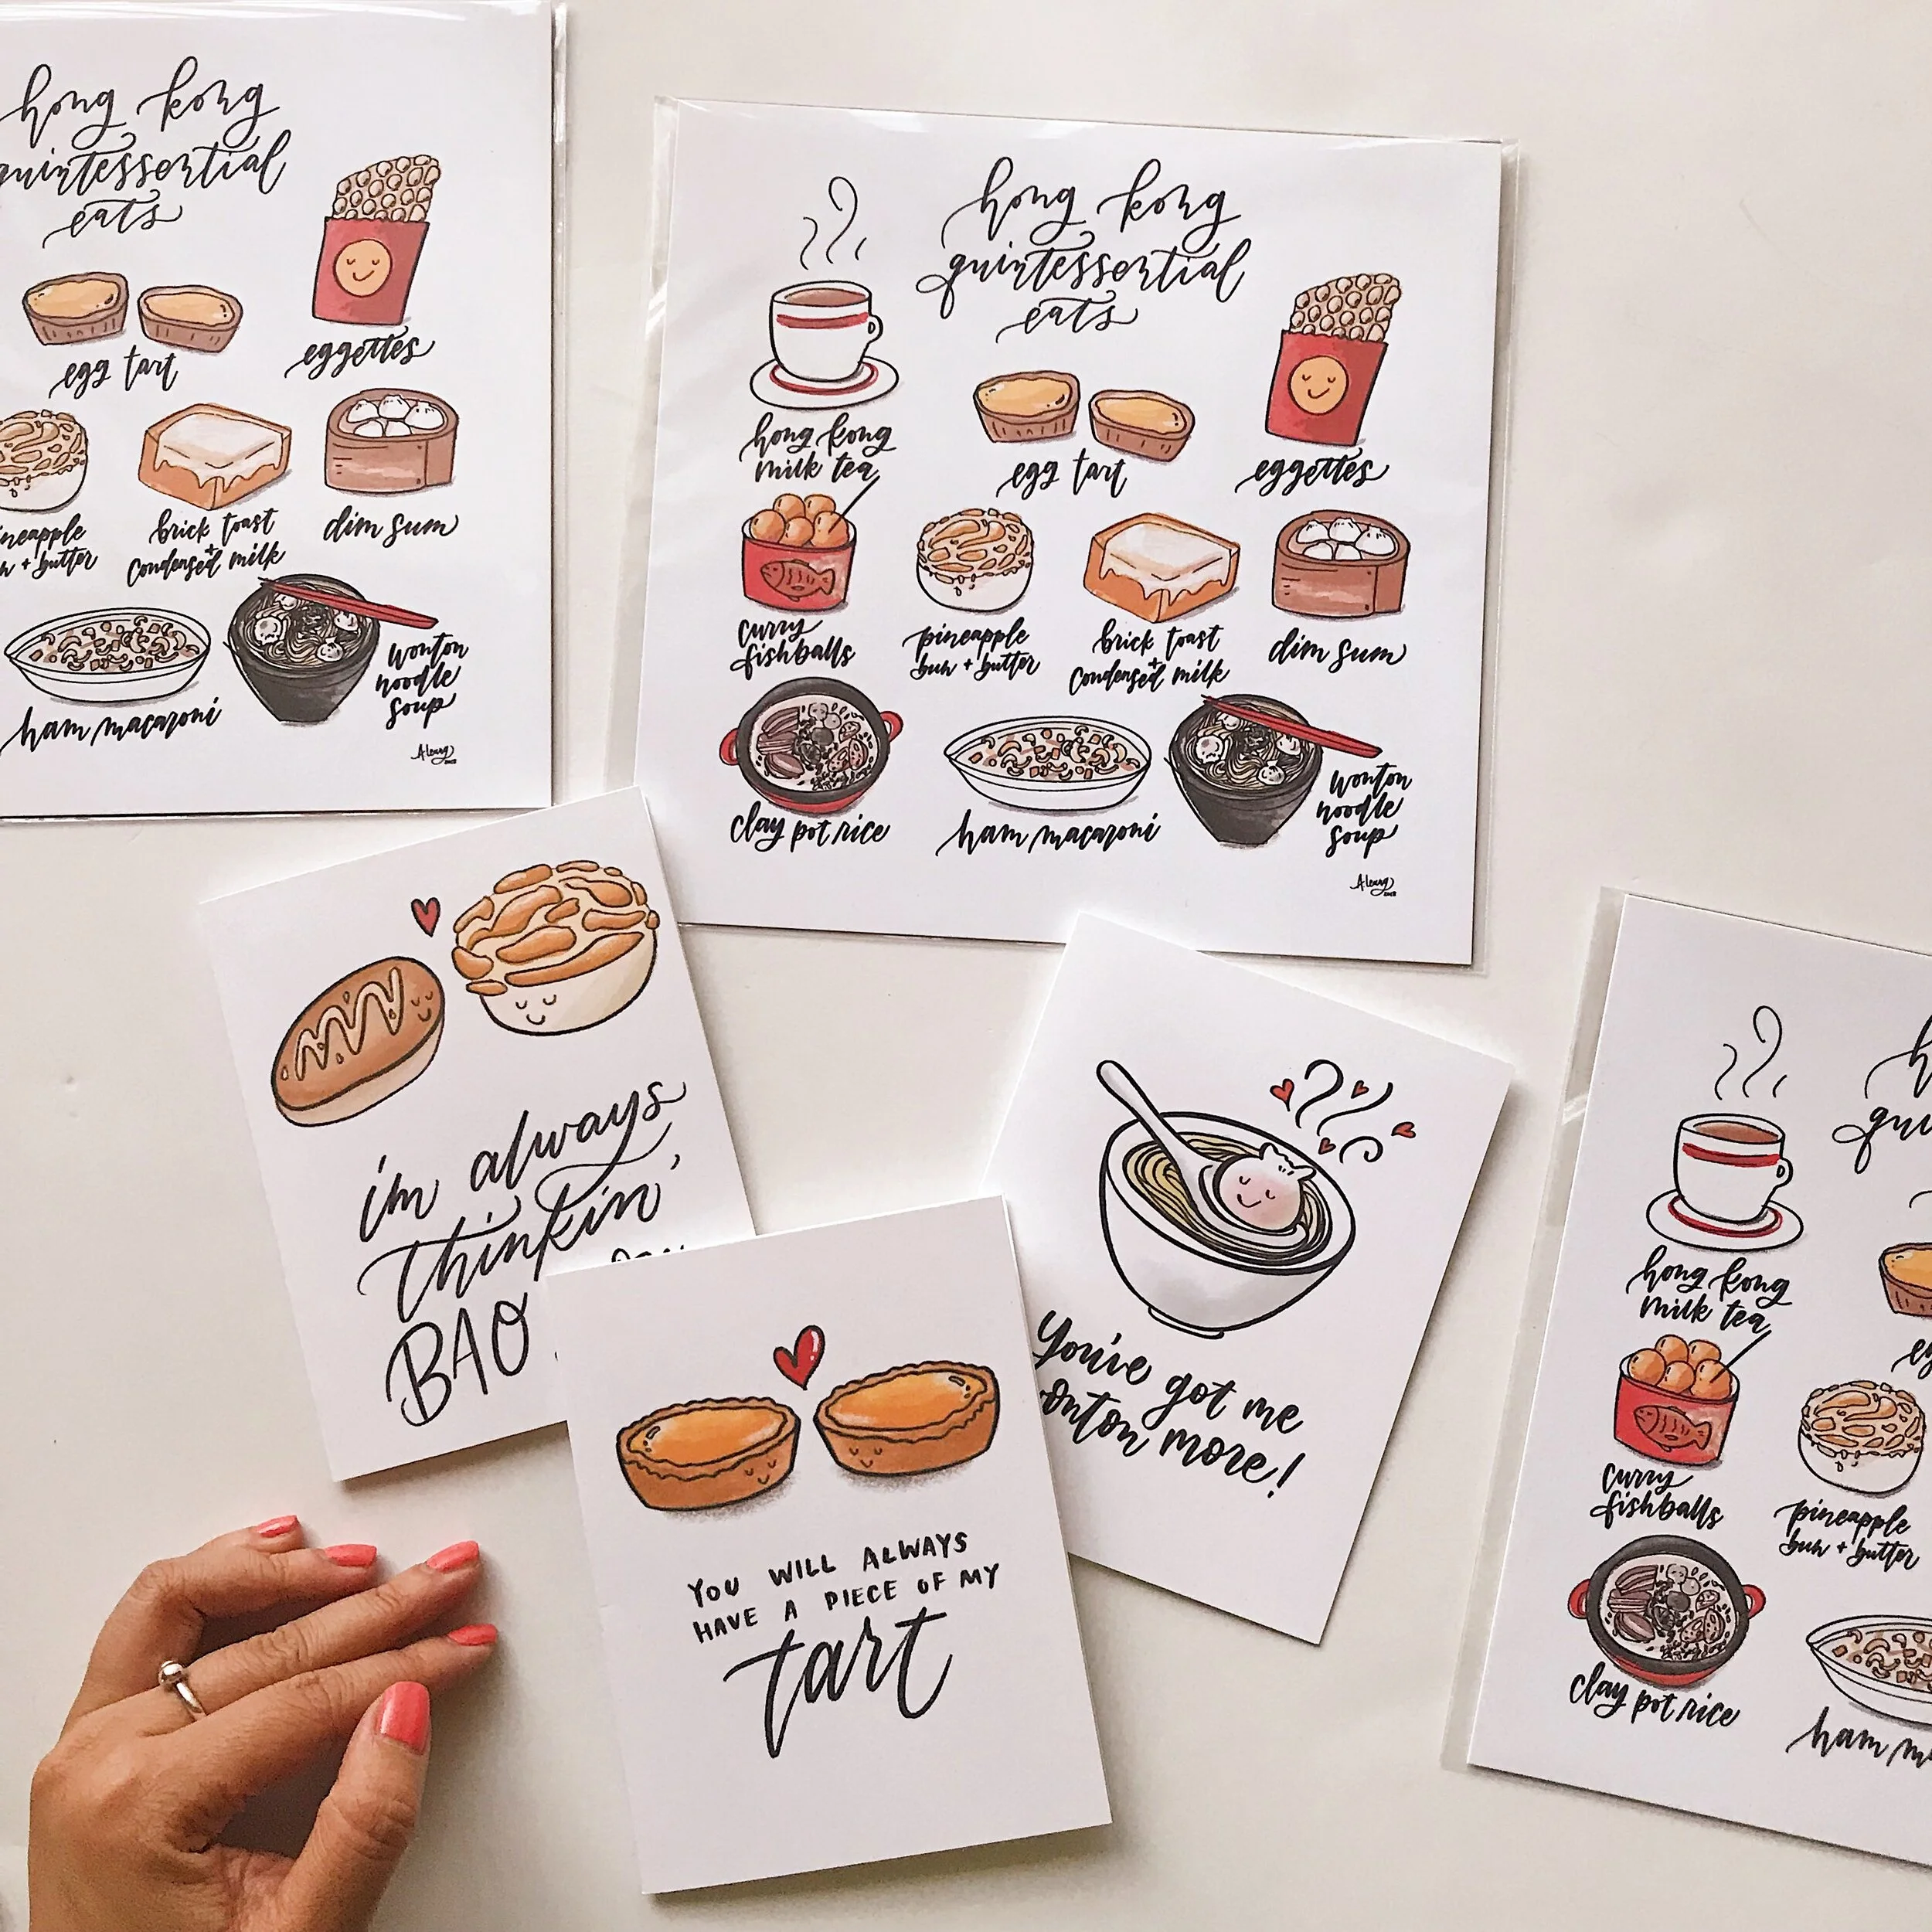 hong kong
quintessential
eats
egg tart
eggettes
brick toast
+
condensed milk
dim sum
+ butter
ham macaroni
wonton
noodle
soup
ALeung
hong kong
quintessential
eats
hong kong
milk tea
egg tart
eggettes
curry
fishballs
pineapple
bun + butter
brick toast
+
condensed milk
dim sum
clay pot rice
ham macaroni
wonton
noodle
soup
ALeung
i'm always
thinkin'
BAO
You've got me
wonton more!
YOU WILL ALWAYS
HAVE A PIECE OF MY
tart
hong kong
milk tea
curry
fishballs
pineapple
bun + butter
clay pot rice
ham